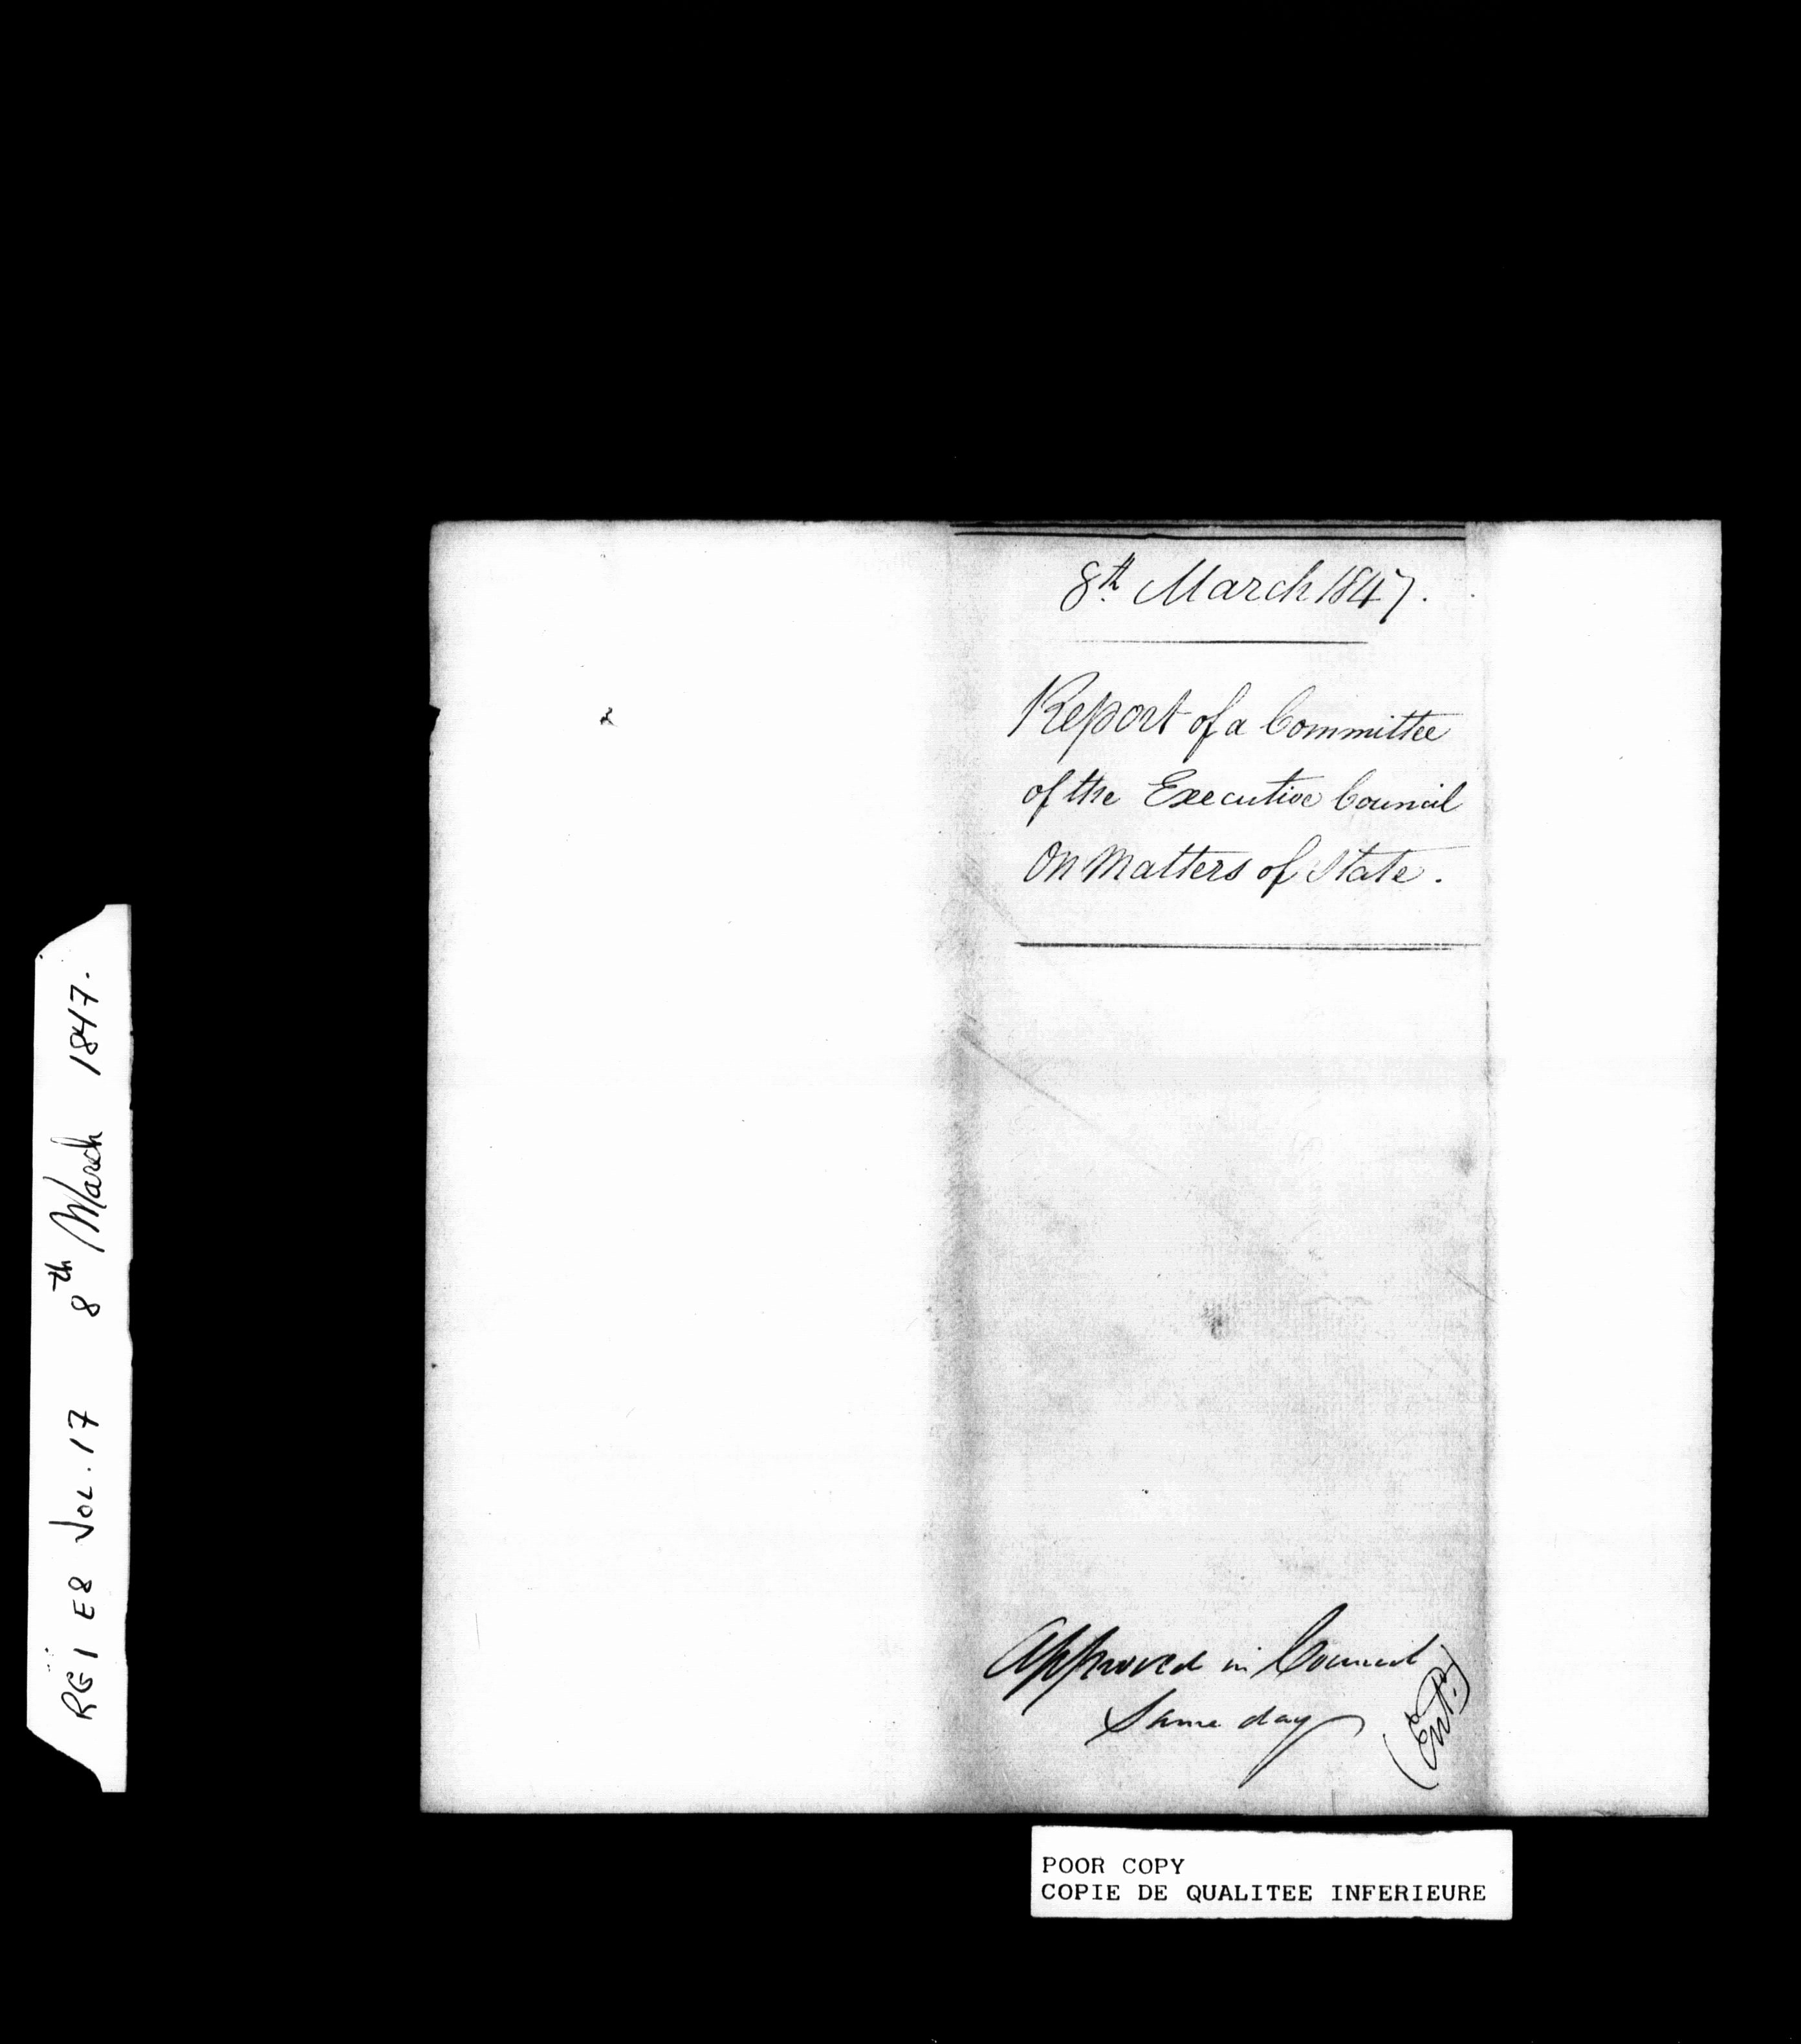 8th March 1847.
Report of a Committee
of the Executive Council
On Matters of State.
Approved in Council
Same day
(Ent.d)
RG1 E8 VOL. 17 8th March 1847.
POOR COPY
COPIE DE QUALITEE INFERIEURE